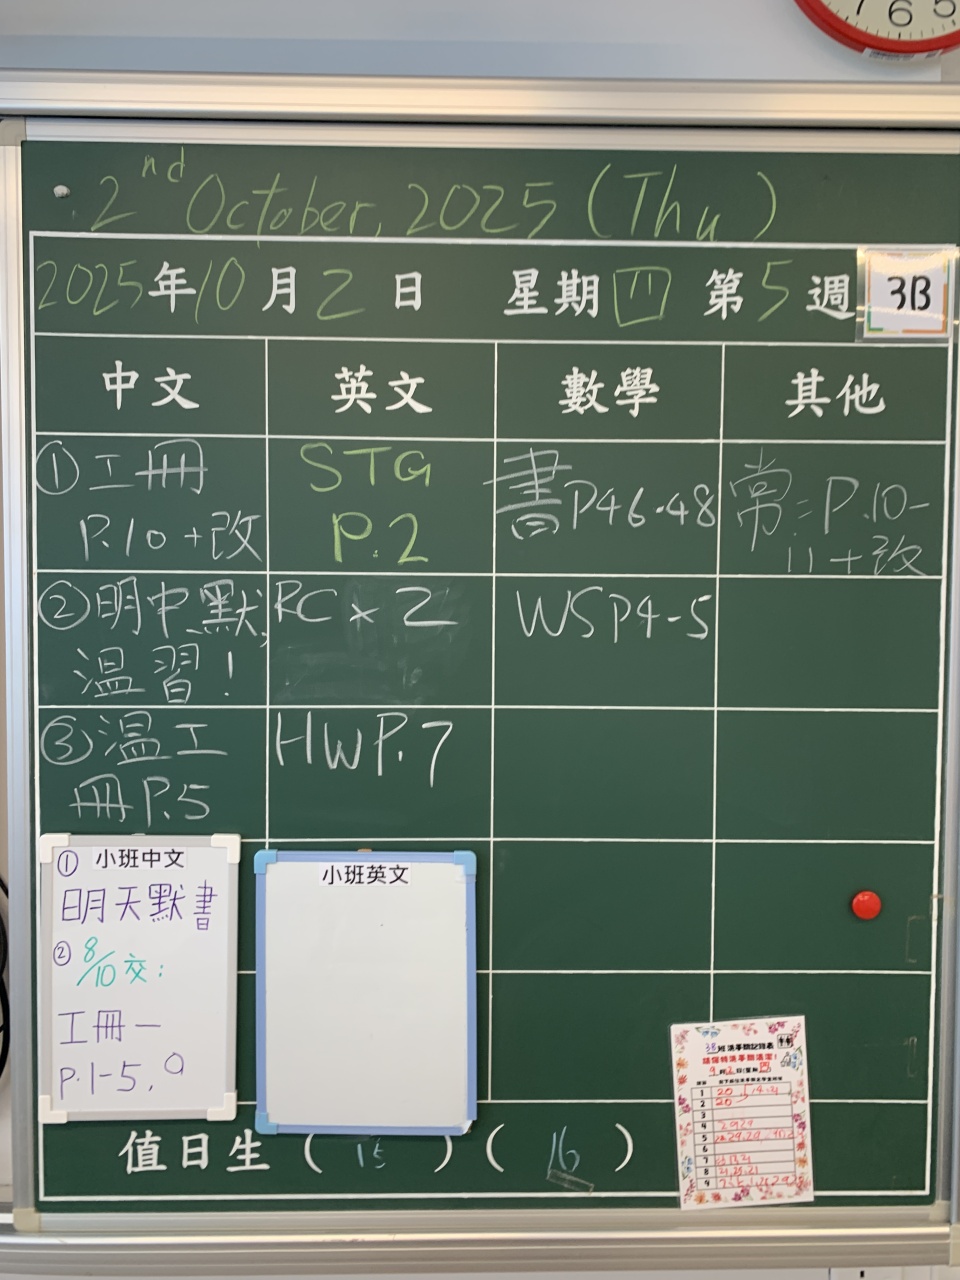 7 6 5
2nd October, 2025 (Thu)
2025年10月2日 星期四 第5週
3B
中文 英文 數學 其他
①工冊
P.10+改
STG
P.2
書P46-48
常:P.10-
11+改
②明中默,
溫習!
RC x 2
WSP4-5
③溫工
冊P.5
HWP.7
小班中文
①
明天默書
②8/10交:
工冊一
P.1-5,
小班英文
值日生(15)(16)
3B班
1 20
2 20
3
4
5
6
7
8
9